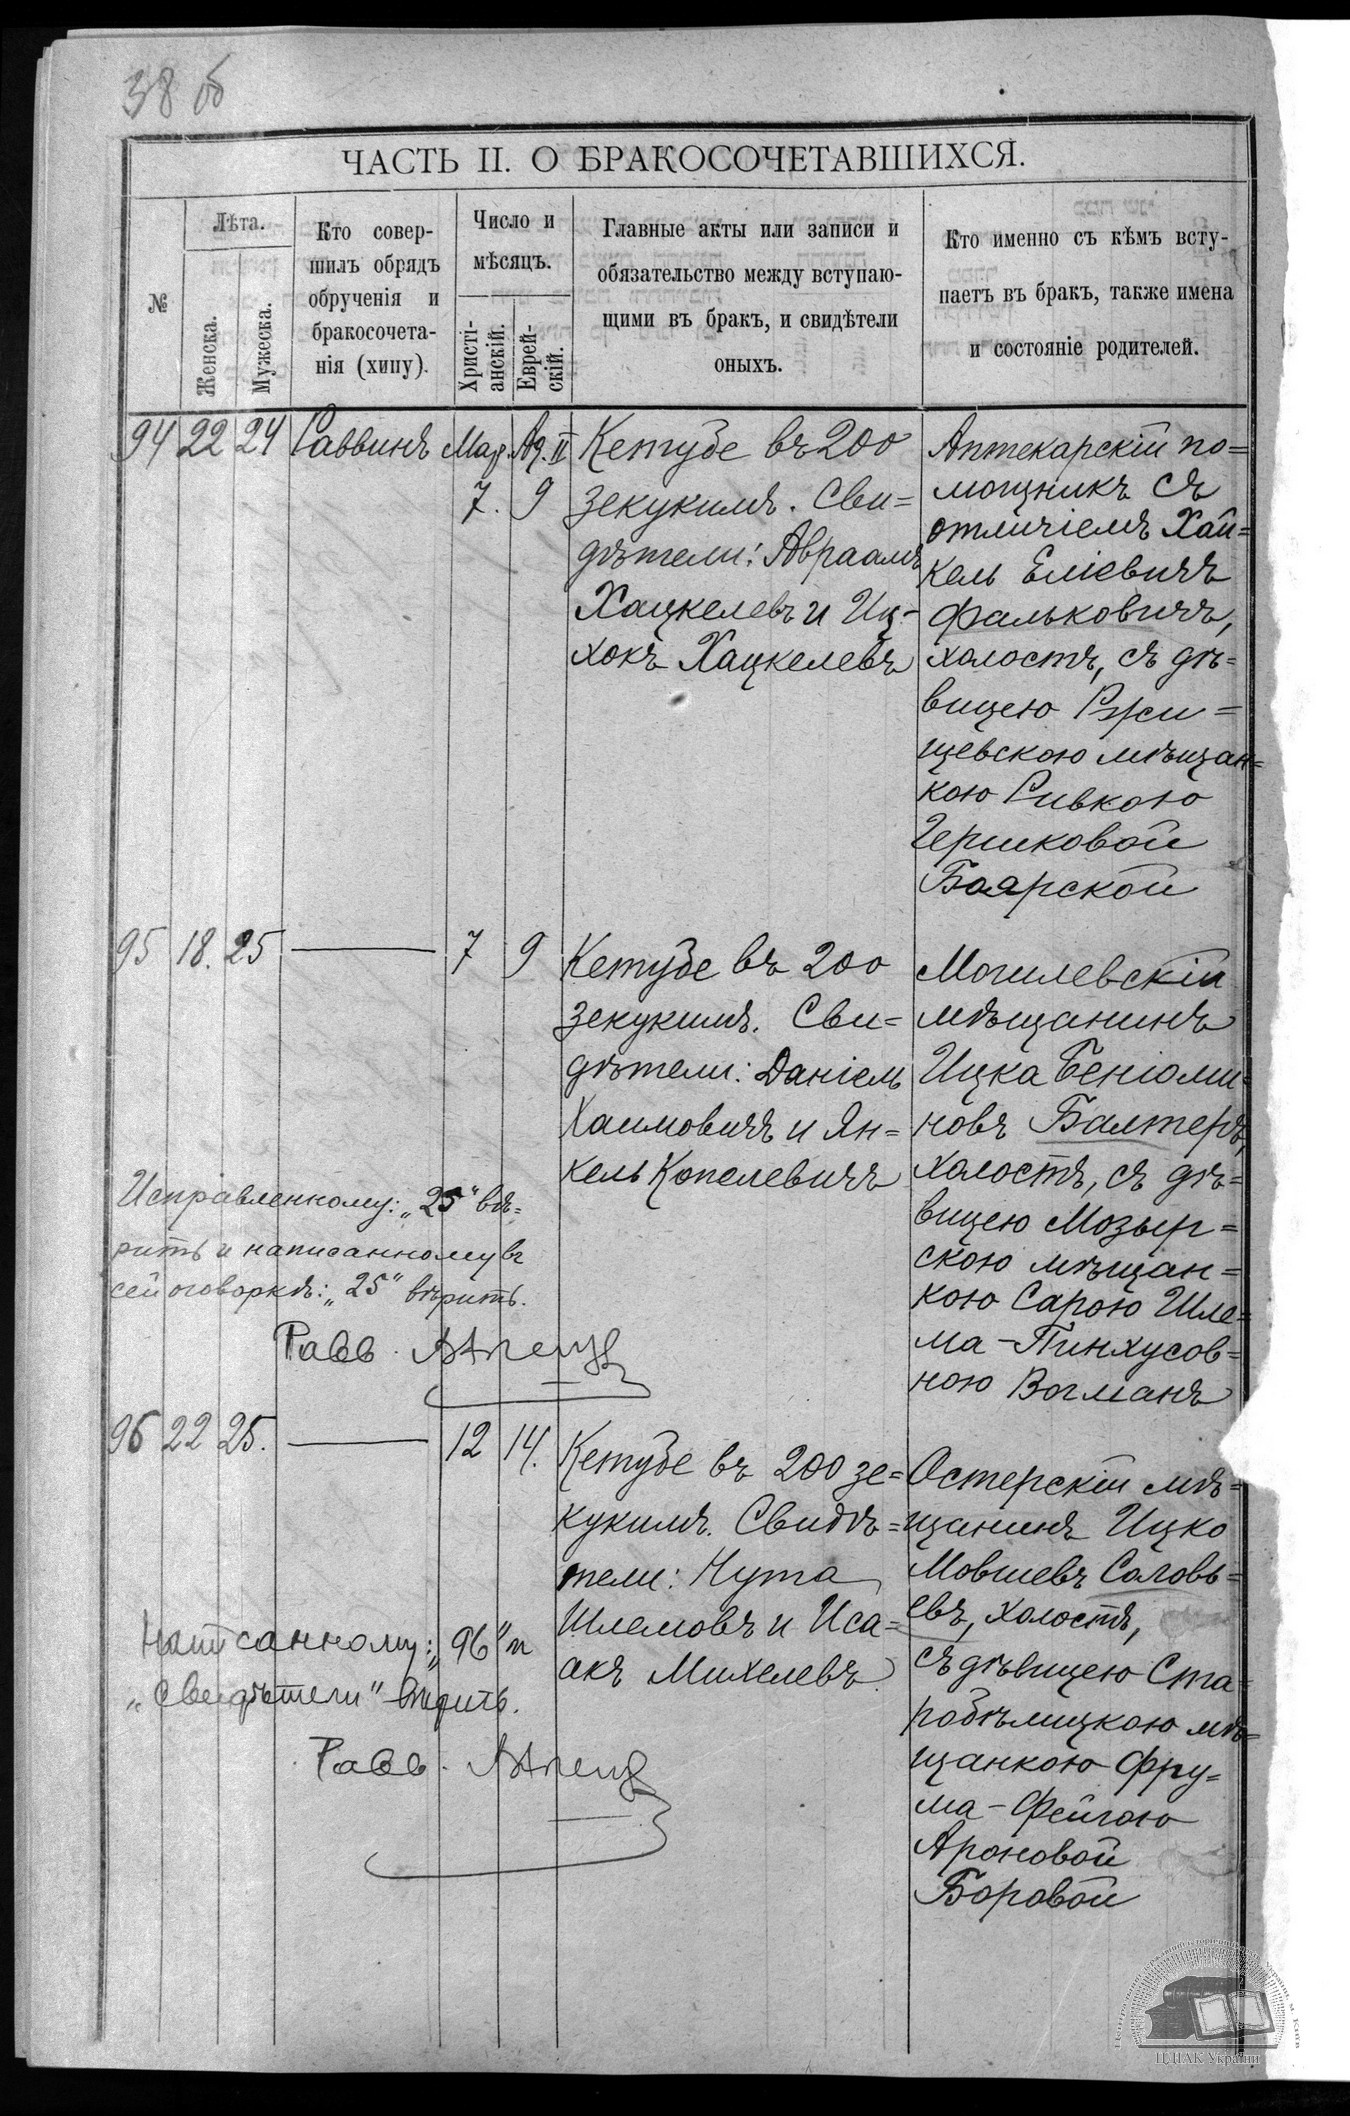 38 об
ЧАСТЬ II. О БРАКОСОЧЕТАВШИХСЯ.
№
Лѣта.
Женска.
Мужеска.
Кто совер-
шилъ обрядъ
обрученія и
бракосочета-
нія (хипу).
Число и
мѣсяцъ.
Христі-
анскій.
Еврей-
скій.
Главные акты или записи и
обязательство между вступаю-
щими въ бракъ, и свидѣтели
оныхъ.
Кто именно съ кѣмъ всту-
паетъ въ бракъ, также имена
и состояніе родителей.
94 22 24 Раввинъ Мар. 7. Ад. II 9
Кетубе въ 200
зекукимъ. Сви=
дѣтели: Авраамъ
Хацкелевъ и Иц-
хокъ Хацкелевъ
Аптекарскій по=
мощникъ съ
отличіемъ Хай=
кель Еліевичъ
Фальковичъ,
холостъ, съ дѣ=
вицею Ржи=
щевскою мѣщан=
кою Ривкою
Гершковой
Боярской
95 18. 25 — 7 9
Кетубе въ 200
зекукимъ. Сви=
дѣтели: Даніель
Хаимовичъ и Ян=
кель Копелевичъ
Могилевскій
мѣщанинъ
Ицка Беніоми=
новъ Балтеръ,
холостъ, съ дѣ=
вицею Мозыр=
скою мѣщан=
кою Сарою Шле=
ма-Пинхусов=
ною Вогманъ
Исправленному: „25" вѣ=
рить и написанному въ
сей оговоркѣ: „25" вѣрить.
Равв.
96 22 25. — 12 14.
Кетубе въ 200 зе=
кукимъ. Свидѣ=
тели: Нута
Шлемовъ и Иса=
акъ Михелевъ.
Остерскій мѣ=
щанинъ Ицко
Мовшевъ Соловь=
евъ, холостъ,
съ дѣвицею Ста=
робѣлицкою мѣ=
щанкою Фру=
ма-Фейгою
Ароновой
Боровой
Написанному: „96" и
„Свидѣтели" вѣрить.
Равв.
ЦДІАК України